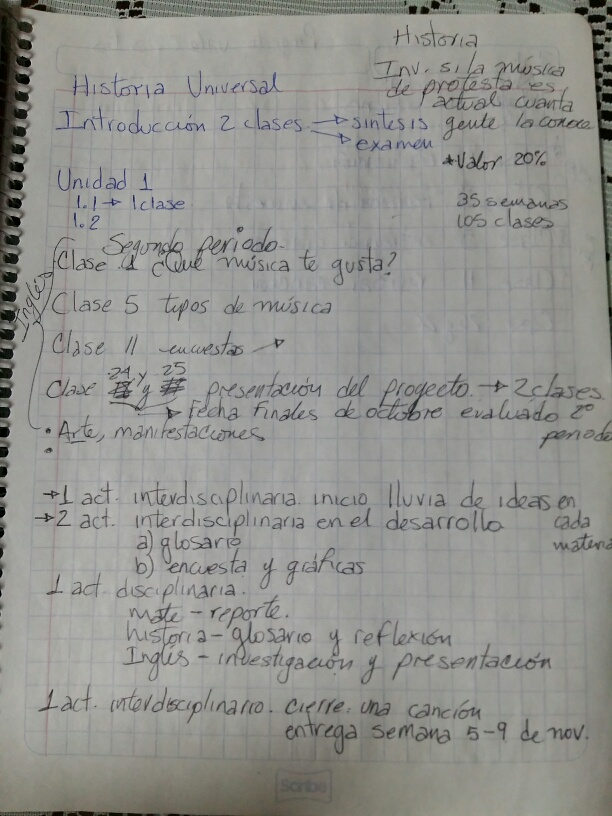 Historia
Inv. si la música
de protesta es
actual cuanta
gente la conoce
*Valor 20%
Historia Universal
Introducción 2 clases → síntesis
→ examen
Unidad 1
1.1 → 1 clase
1.2
35 semanas
105 clases
Segundo periodo.
Inglés
Clase 1 ¿Qué música te gusta?
Clase 5 tipos de música
Clase 11 encuestas →
24 y 25
Clase y presentación del proyecto → 2 clases.
→ Fecha finales de octubre evaluado 2º
periodo
• Arte, manifestaciones
•
→ 1 act. interdisciplinaria inicio lluvia de ideas en
→ 2 act. interdisciplinaria en el desarrollo cada
materia
a) glosario
b) encuesta y gráficas
1 act disciplinaria.
mate - reporte.
historia - glosario y reflexión
Inglés - investigación y presentación
1 act. interdisciplinario. cierre. una canción
entrega semana 5-9 de nov.
Scribe